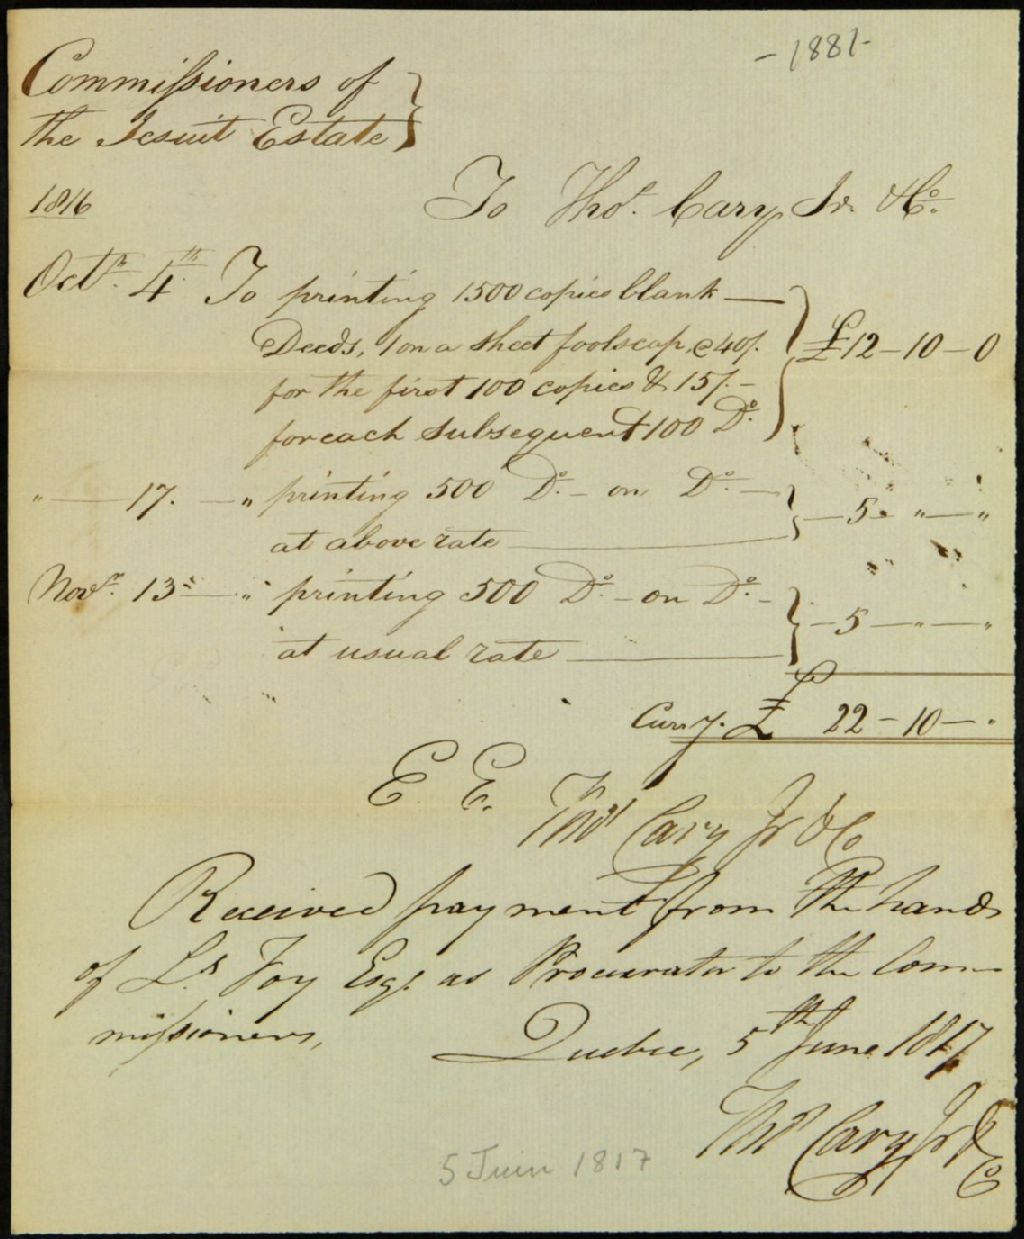 - 1881 -
Commissioners of
the Jesuit Estate }
1816
To Thos. Cary Jr. & Co.
Octr. 4th To printing 1500 copies blank —
Deeds, 1 on a sheet foolscap, @ 40/. £12-10-0
for the first 100 copies & 15/. -
for each subsequent 100 Do.
" — 17. — " printing 500 Do. - on Do. —
at above rate — 5 " — "
Novr. 13 — " printing 500 Do. - on Do. -
at usual rate — 5 — " — "
Curry. £ 22-10-.
E E.
Thos Cary Jr & Co
Received payment from the hands
of Ls. Foy Esqr. as Procurator to the Com-
missioners,
Quebec, 5th June 1817
Thos Cary Jr & Co
5 Juin 1817